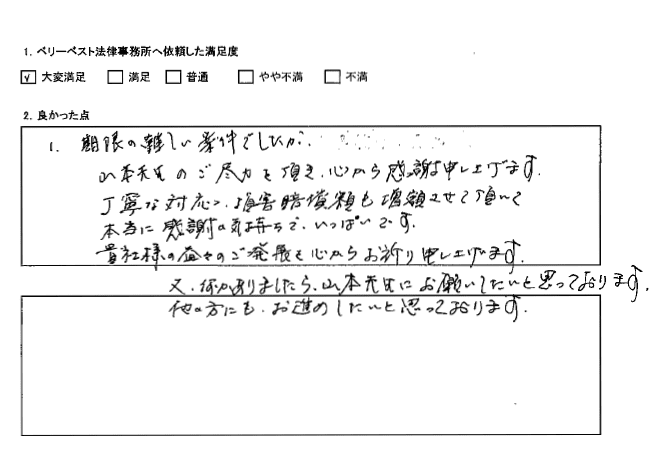 1. ベリーベスト法律事務所へ依頼した満足度
☑ 大変満足 □ 満足 □ 普通 □ やや不満 □ 不満
2. 良かった点
1. 期限の難しい案件でしたが、
山本先生のご尽力を頂き、心から感謝申し上げます。
丁寧な対応、損害賠償額も増額させて頂いて
本当に感謝の気持ちで、いっぱいです。
貴社様の益々のご発展を心からお祈り申し上げます。
又、何かありましたら、山本先生にお願いしたいと思っております。
他の方にも、お進めしたいと思っております。